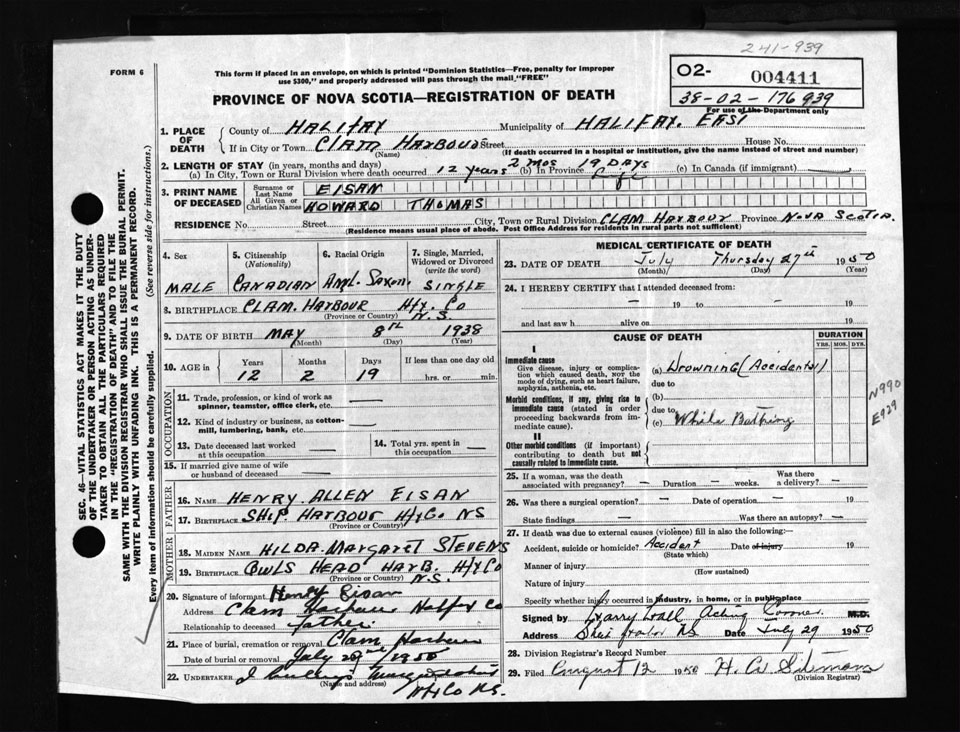 241-939
FORM 6
This form if placed in an envelope, on which is printed "Dominion Statistics—Free, penalty for improper
use $300," and properly addressed will pass through the mail "FREE"
O2- 004411
38-02-176939
For use of the Department only
PROVINCE OF NOVA SCOTIA—REGISTRATION OF DEATH
1. PLACE OF DEATH
County of HALIFAX Municipality of HALIFAX. EAST
If in City or Town CLAM HARBOUR Street House No.
(Name) (If death occurred in a hospital or institution, give the name instead of street and number)
2. LENGTH OF STAY (in years, months and days)
(a) In City, Town or Rural Division where death occurred 12 years 2 mos 19 DAYS (b) In Province Life (c) In Canada (if immigrant)
3. PRINT NAME OF DECEASED
Surname or Last Name EISAN
All Given or Christian Names HOWARD THOMAS
RESIDENCE No. Street City, Town or Rural Division CLAM HARBOUR Province NOVA SCOTIA.
(Residence means usual place of abode. Post Office Address for residents in rural parts not sufficient)
4. Sex
MALE
5. Citizenship (Nationality)
CANADIAN
6. Racial Origin
Angl. Saxon.
7. Single, Married, Widowed or Divorced (write the word)
SINGLE
8. BIRTHPLACE CLAM. HARBOUR Hfx. Co N.S.
(Province or Country)
9. DATE OF BIRTH MAY 8TH 1938
(Month) (Day) (Year)
10. AGE in Years Months Days If less than one day old
12 2 19 hrs. or min.
OCCUPATION
11. Trade, profession or kind of work as spinner, teamster, office clerk, etc.
12. Kind of industry or business, as cotton-mill, lumbering, bank, etc.
13. Date deceased last worked at this occupation
14. Total yrs. spent in this occupation
15. If married give name of wife or husband of deceased
FATHER
16. NAME HENRY. ALLEN EISAN
17. BIRTHPLACE SHIP. HARBOUR HfxCo NS
(Province or Country)
MOTHER
18. MAIDEN NAME HILDA. MARGARET STEVENS
19. BIRTHPLACE OWLS HEAD HARB. HfxCo N.S.
(Province or Country)
20. Signature of informant Henry Eisan
Address Clam Harbour Halifax Co
Relationship to deceased father.
21. Place of burial, cremation or removal Clam Harbour
Date of burial or removal July 1950
22. UNDERTAKER Hfx Co NS.
MEDICAL CERTIFICATE OF DEATH
23. DATE OF DEATH July Thursday 27th 1950
(Month) (Day) (Year)
24. I HEREBY CERTIFY that I attended deceased from:
— 19 to — 19
and last saw h alive on 19
CAUSE OF DEATH DURATION
YRS. MOS. DYS.
I
Immediate cause
Give disease, injury or complication which caused death, NOT the mode of dying, such as heart failure, asphyxia, asthenia, etc.
(a) Drowning (Accidental)
due to
Morbid conditions, if any, giving rise to immediate cause (stated in order proceeding backwards from immediate cause).
(b)
due to
(c) While Bathing
II
Other morbid conditions (if important) contributing to death but not causally related to immediate cause.
N990
E929
25. If a woman, was the death associated with pregnancy? — Duration — weeks. Was there a delivery? —
26. Was there a surgical operation? — Date of operation —
State findings Was there an autopsy? —
27. If death was due to external causes (violence) fill in also the following:—
Accident, suicide or homicide? Accident Date of injury 19
(State which)
Manner of injury
(How sustained)
Nature of injury
Specify whether injury occurred in industry, in home, or in public place
Signed by Harry Acting Coroner M.D.
Address NS Date July 29 1950
28. Division Registrar's Record Number
29. Filed August 12 1950
(Division Registrar)
SEC. 46—VITAL STATISTICS ACT MAKES IT THE DUTY
OF THE UNDERTAKER OR PERSON ACTING AS UNDER-
TAKER TO OBTAIN ALL THE PARTICULARS REQUIRED
IN THE "REGISTRATION OF DEATH" AND TO FILE THE
SAME WITH THE DIVISION REGISTRAR WHO SHALL ISSUE THE BURIAL PERMIT.
WRITE PLAINLY WITH UNFADING INK. THIS IS A PERMANENT RECORD.
Every item of information should be carefully supplied. (See reverse side for instructions.)